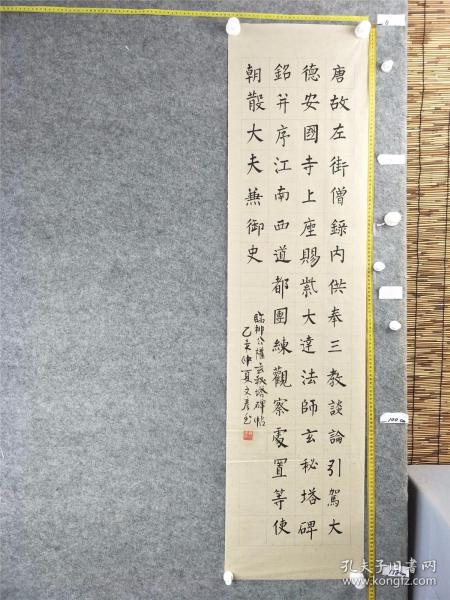 唐故左街僧錄內供奉三教談論引駕大
德安國寺上座賜紫大達法師玄秘塔碑
銘并序江南西道都團練觀察處置等使
朝散大夫兼御史
臨柳公權玄秘塔碑帖
乙亥仲夏文彦书
孔夫子旧书网
kongfz.com